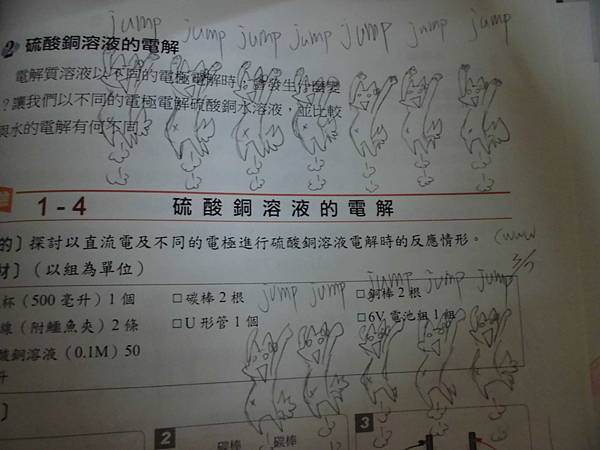 jump jump jump jump jump jump jump
2 硫酸銅溶液的電解
電解質溶液以不同的電極電解時，會發生什麼變
？讓我們以不同的電極電解硫酸銅水溶液，並比較
與水的電解有何不同
1-4 硫酸銅溶液的電解
的〕探討以直流電及不同的電極進行硫酸銅溶液電解時的反應情形。
材〕（以組為單位）
jump jump jump jump jump
杯（500 毫升）1 個 □碳棒 2 根 □銅棒 2 根
線（附鱷魚夾）2 條 □U 形管 1 個 □6V 電池組 1 組
酸銅溶液（0.1M）50
升
〕
2 碳棒 碳棒 3